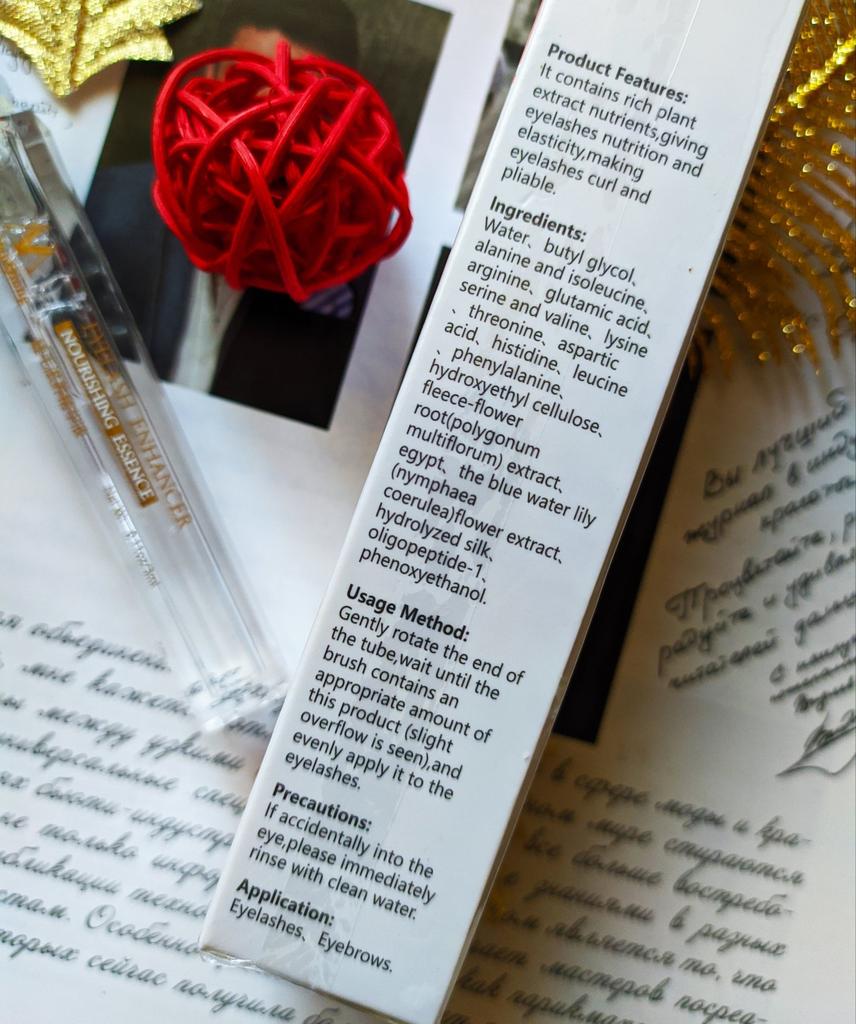 Product Features:
It contains rich plant
extract nutrients,giving
eyelashes nutrition and
elasticity,making
eyelashes curl and
pliable.
Ingredients:
Water、butyl glycol、
alanine and isoleucine、
arginine、glutamic acid、
serine and valine、lysine
、threonine、aspartic
acid、histidine、leucine
、phenylalanine、
hydroxyethyl cellulose、
fleece-flower
root(polygonum
multiflorum) extract、
egypt、the blue water lily
(nymphaea
coerulea)flower extract、
hydrolyzed silk、
oligopeptide-1、
phenoxyethanol.
Usage Method:
Gently rotate the end of
the tube,wait until the
brush contains an
appropriate amount of
this product (slight
overflow is seen),and
evenly apply it to the
eyelashes.
Precautions:
If accidentally into the
eye,please immediately
rinse with clean water.
Application:
Eyelashes、Eyebrows.
ENHANCER
NOURISHING ESSENCE
Вы лучший
журнал в
Процветайте,
радуйте и
читателей
мне кажется
между
не только
Особенно
торых сейчас получила
в сфере моды и кра-
мире стираются
все больше востребо-
знаниями в разных
является то, что
мастеров
как